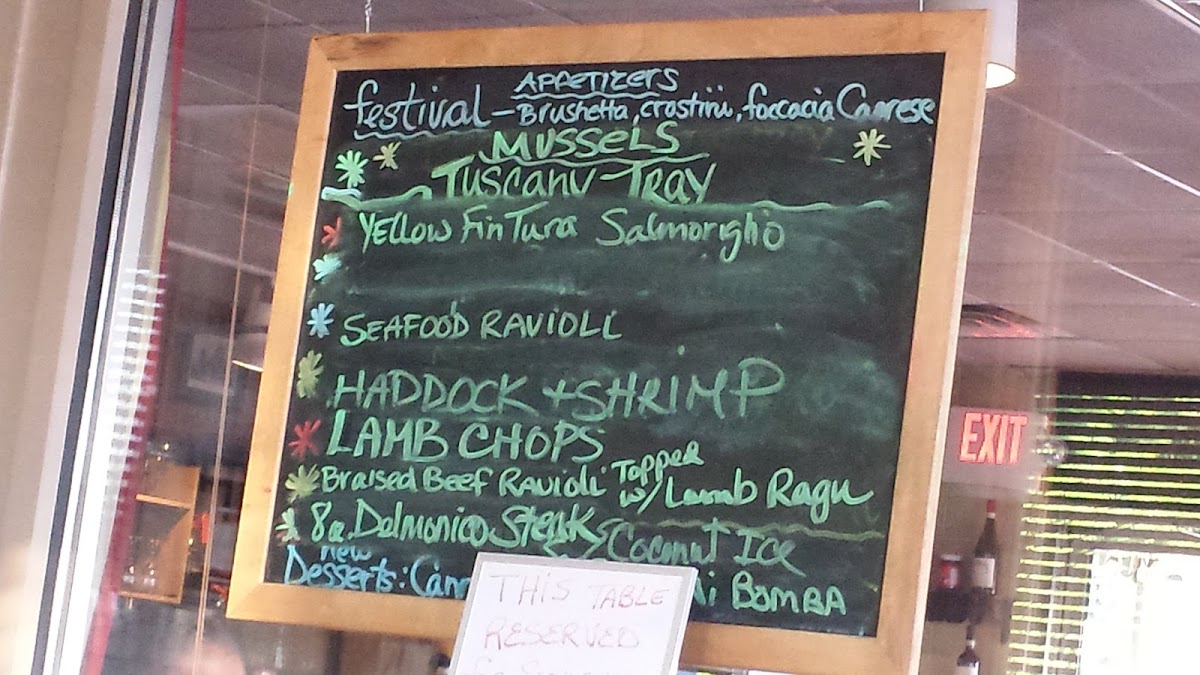 APPETIZERS
festival - Brushetta, crostini, foccacia Canrese
MUSSELS
TUSCANY TRAY
YELLOW Fin Tuna Salmoriglio
SEAFOOD RAVIOLI
HADDOCK + SHRIMP
LAMB CHOPS
Braised Beef RAVIOLI TOPPED w/ Lamb Ragu
8oz Delmonico Steak
Coconut ICE
new
Desserts: BOMBA
THIS TABLE
RESERVED
EXIT